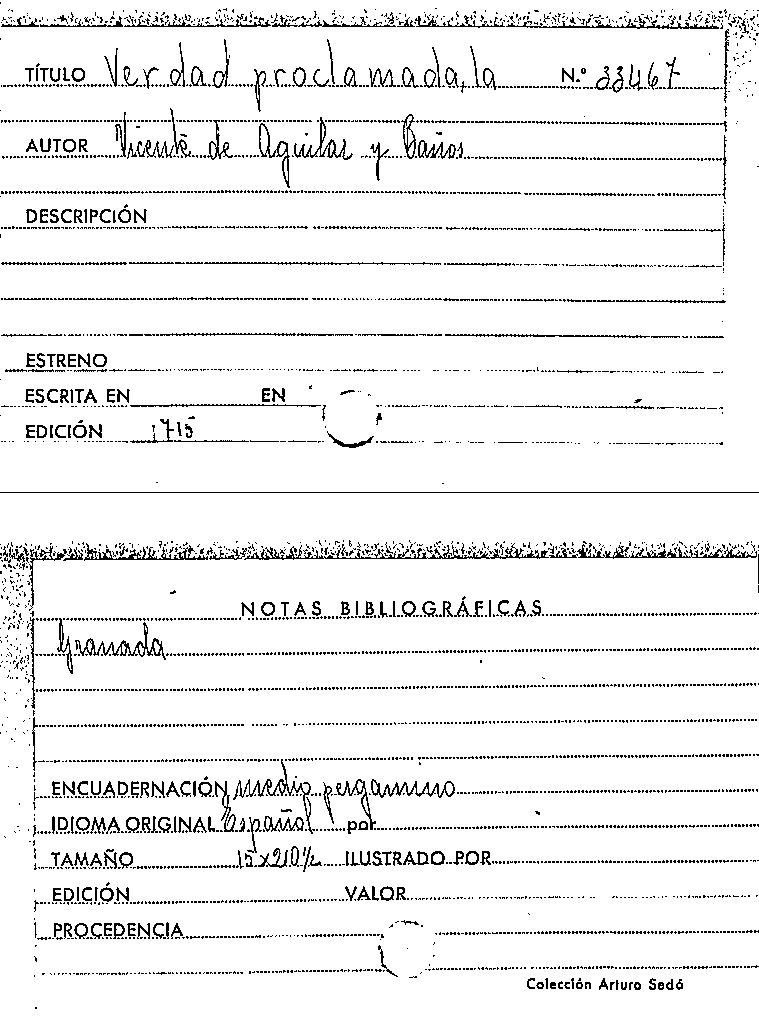 TÍTULO Verdad proclamada, la N.º 33467
AUTOR Vicente de Aguilar y Baños
DESCRIPCIÓN
ESTRENO
ESCRITA EN EN
EDICIÓN 1715
NOTAS BIBLIOGRÁFICAS
Granada
ENCUADERNACIÓN medio pergamino
IDIOMA ORIGINAL Español por
TAMAÑO ILUSTRADO POR
EDICIÓN VALOR
PROCEDENCIA
Colección Arturo Sedó